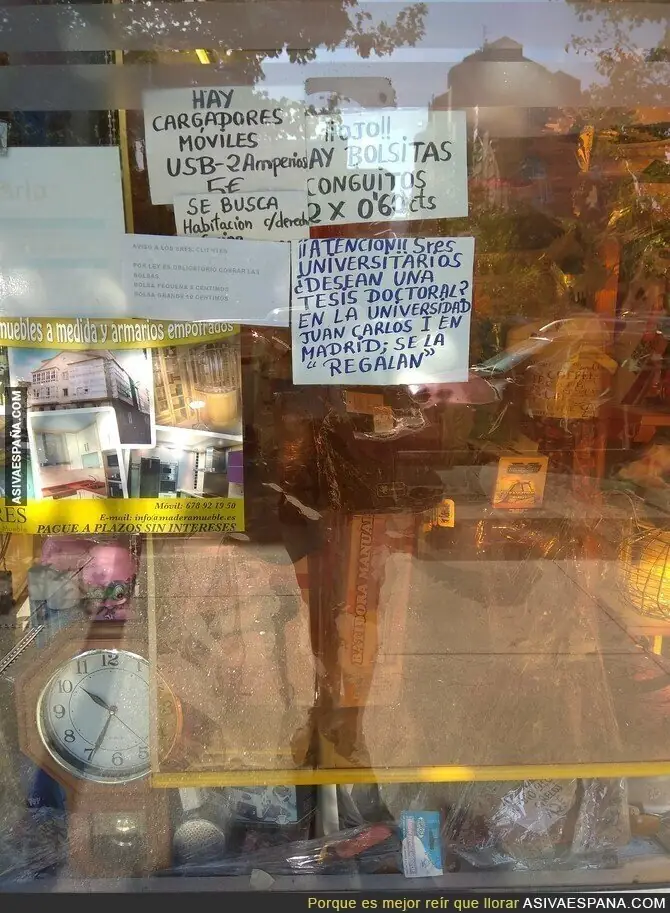 HAY
CARGADORES
MÓVILES
USB-2 Amperios
5€
¡¡OJO!!
AY BOLSITAS
CONGUITOS
2 X 0'6 cts
SE BUSCA
Habitación c/derecho
AVISO A LOS SRES. CLIENTES
POR LEY ES OBLIGATORIO COBRAR LAS
BOLSAS
BOLSA PEQUEÑA 5 CENTIMOS
BOLSA GRANDE 10 CENTIMOS
¡¡ATENCION!! Sres
UNIVERSITARIOS
¿DESEAN UNA
TESIS DOCTORAL?
EN LA UNIVERSIDAD
JUAN CARLOS I EN
MADRID; SE LA
"REGALAN"
muebles a medida y armarios empotrados
Móvil: 678 92 19 50
E-mail: info@maderamueble.es
PAGUE A PLAZOS SIN INTERESES
RES
BATIDORA MANUAL
11 12
10
9
8
7 6 5
ASIVAESPAÑA.COM
Porque es mejor reír que llorar ASIVAESPANA.COM